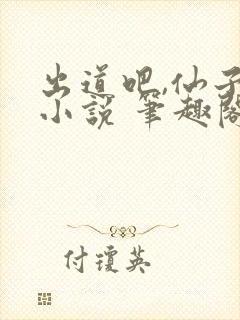 出道吧,仙子
小說 筆趣閣
付瓊英